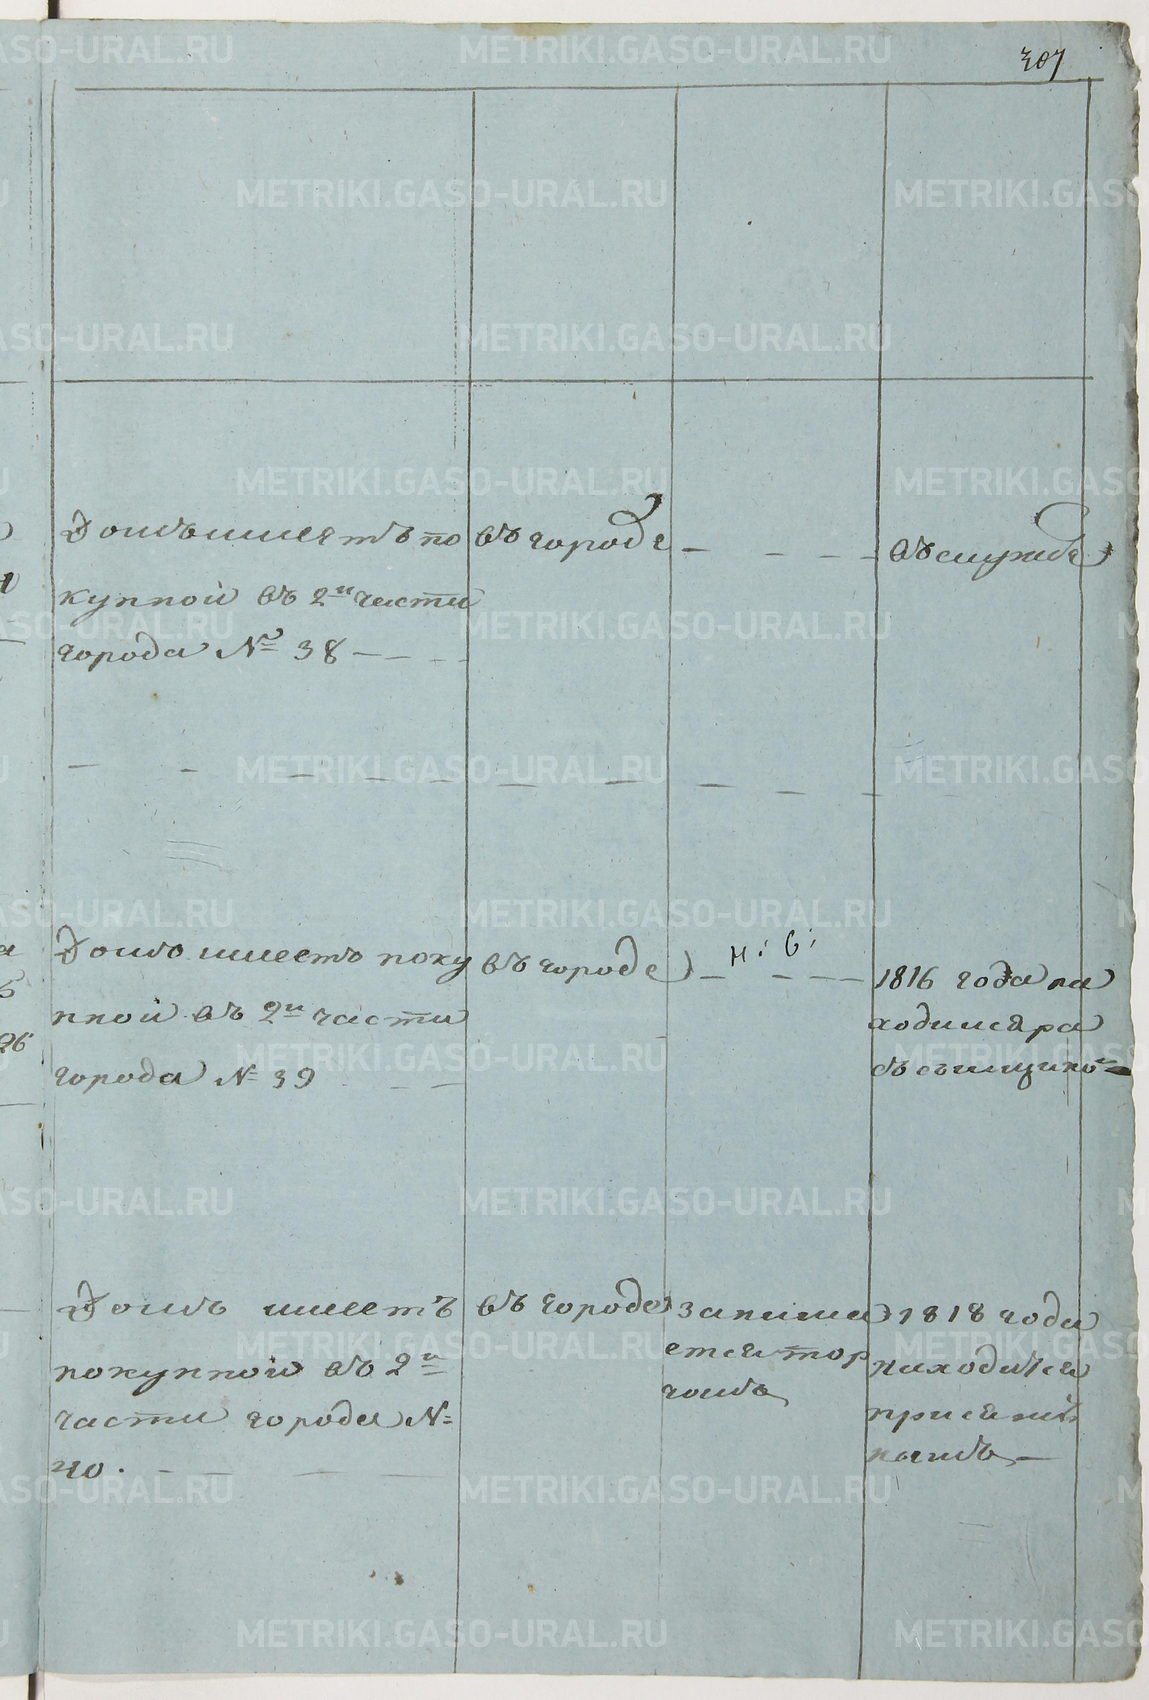 307
Домъ имеетъ по
купной въ 2й части
города № 38
въ городе
въ службе
Домъ имеетъ поку
пной въ 2й части
города № 39
въ городе
1816 года на
ходился ра
Домъ имеетъ
покупной въ 2й
части города №
40.
въ городе
занима
ется тор
гомъ
1818 года
находился
METRIKI.GASO-URAL.RU